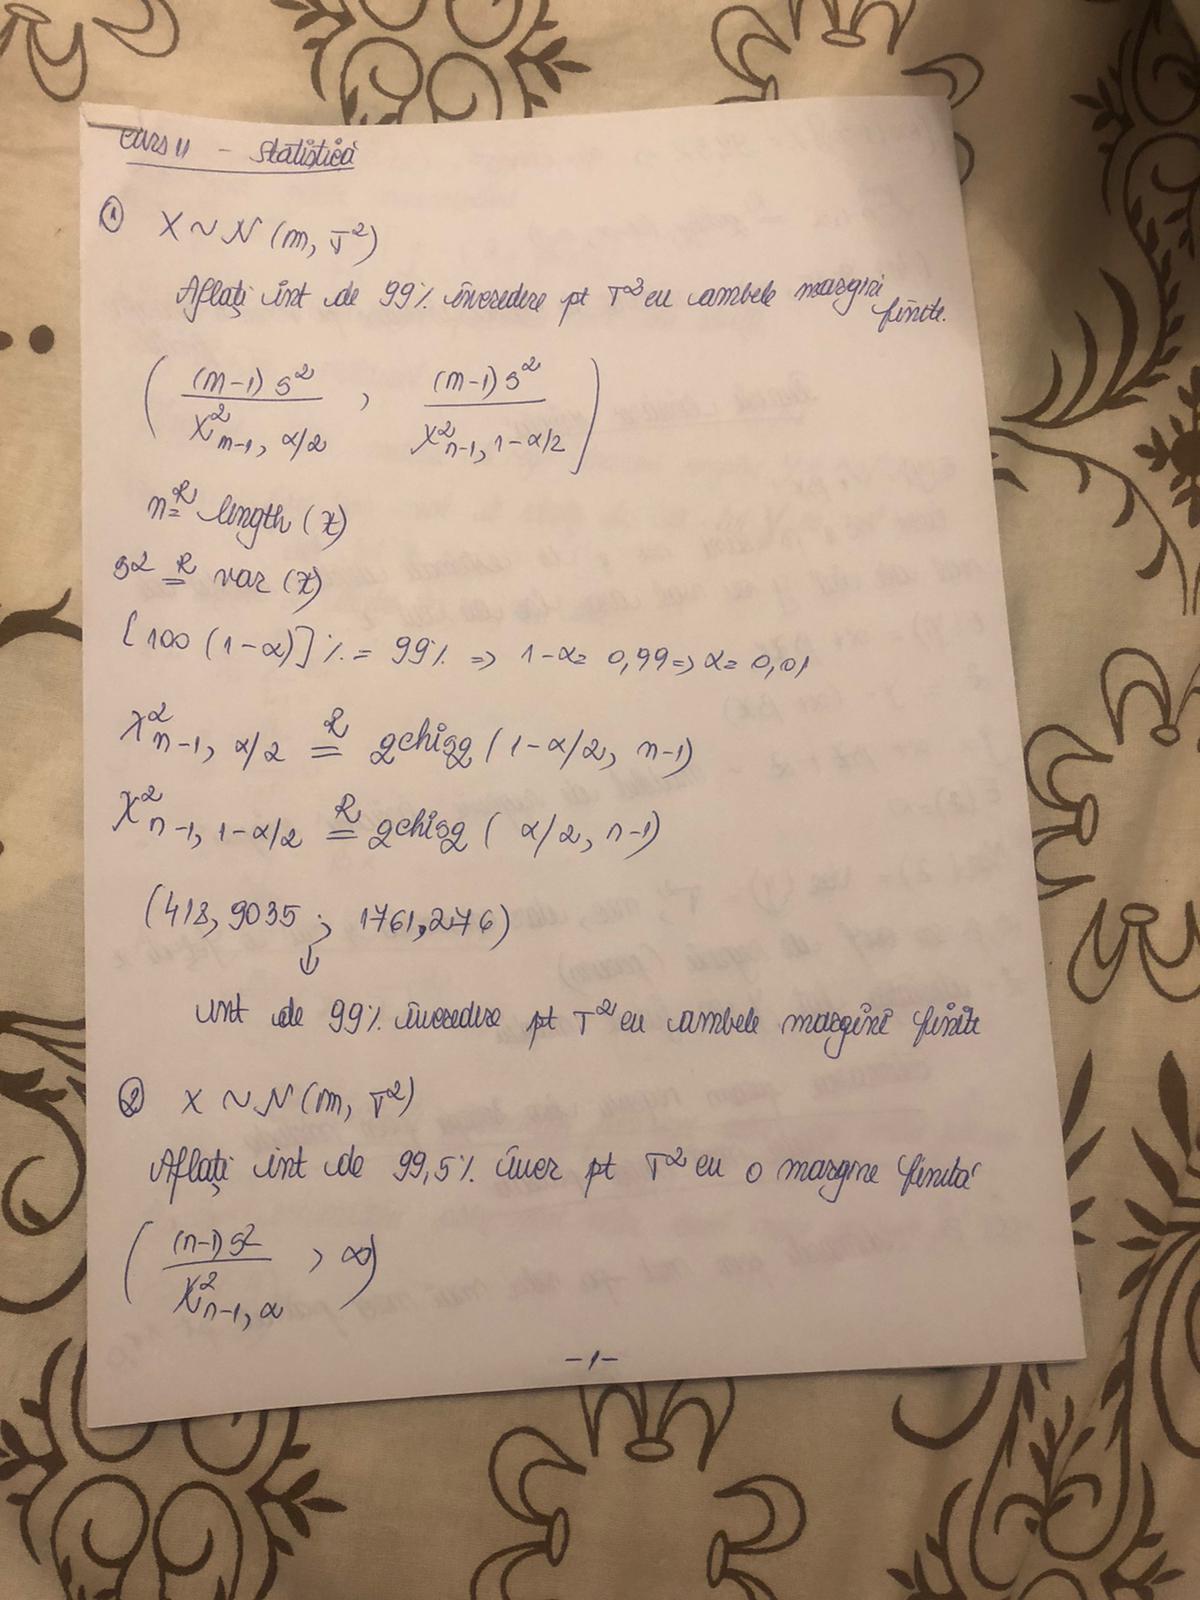 Curs 11 - Statistică
① X ~ N (m, σ²)
Aflați int de 99% încredere pt σ² cu ambele margini finite.
( (n-1) s² / χ²n-1, α/2 , (n-1) s² / χ²n-1, 1-α/2 )
n R= length (x)
s² R= var (x)
[100 (1-α)] % = 99% => 1-α = 0,99 => α = 0,01
χ²n-1, α/2 R= qchisq (1-α/2, n-1)
χ²n-1, 1-α/2 R= qchisq ( α/2, n-1)
(418,9035 ; 1761,276)
↓
int de 99% încredere pt σ² cu ambele margini finite
② X ~ N (m, σ²)
Aflați int de 99,5% încr pt σ² cu o margine finită
( (n-1) s² / χ²n-1, α , ∞)
-1-